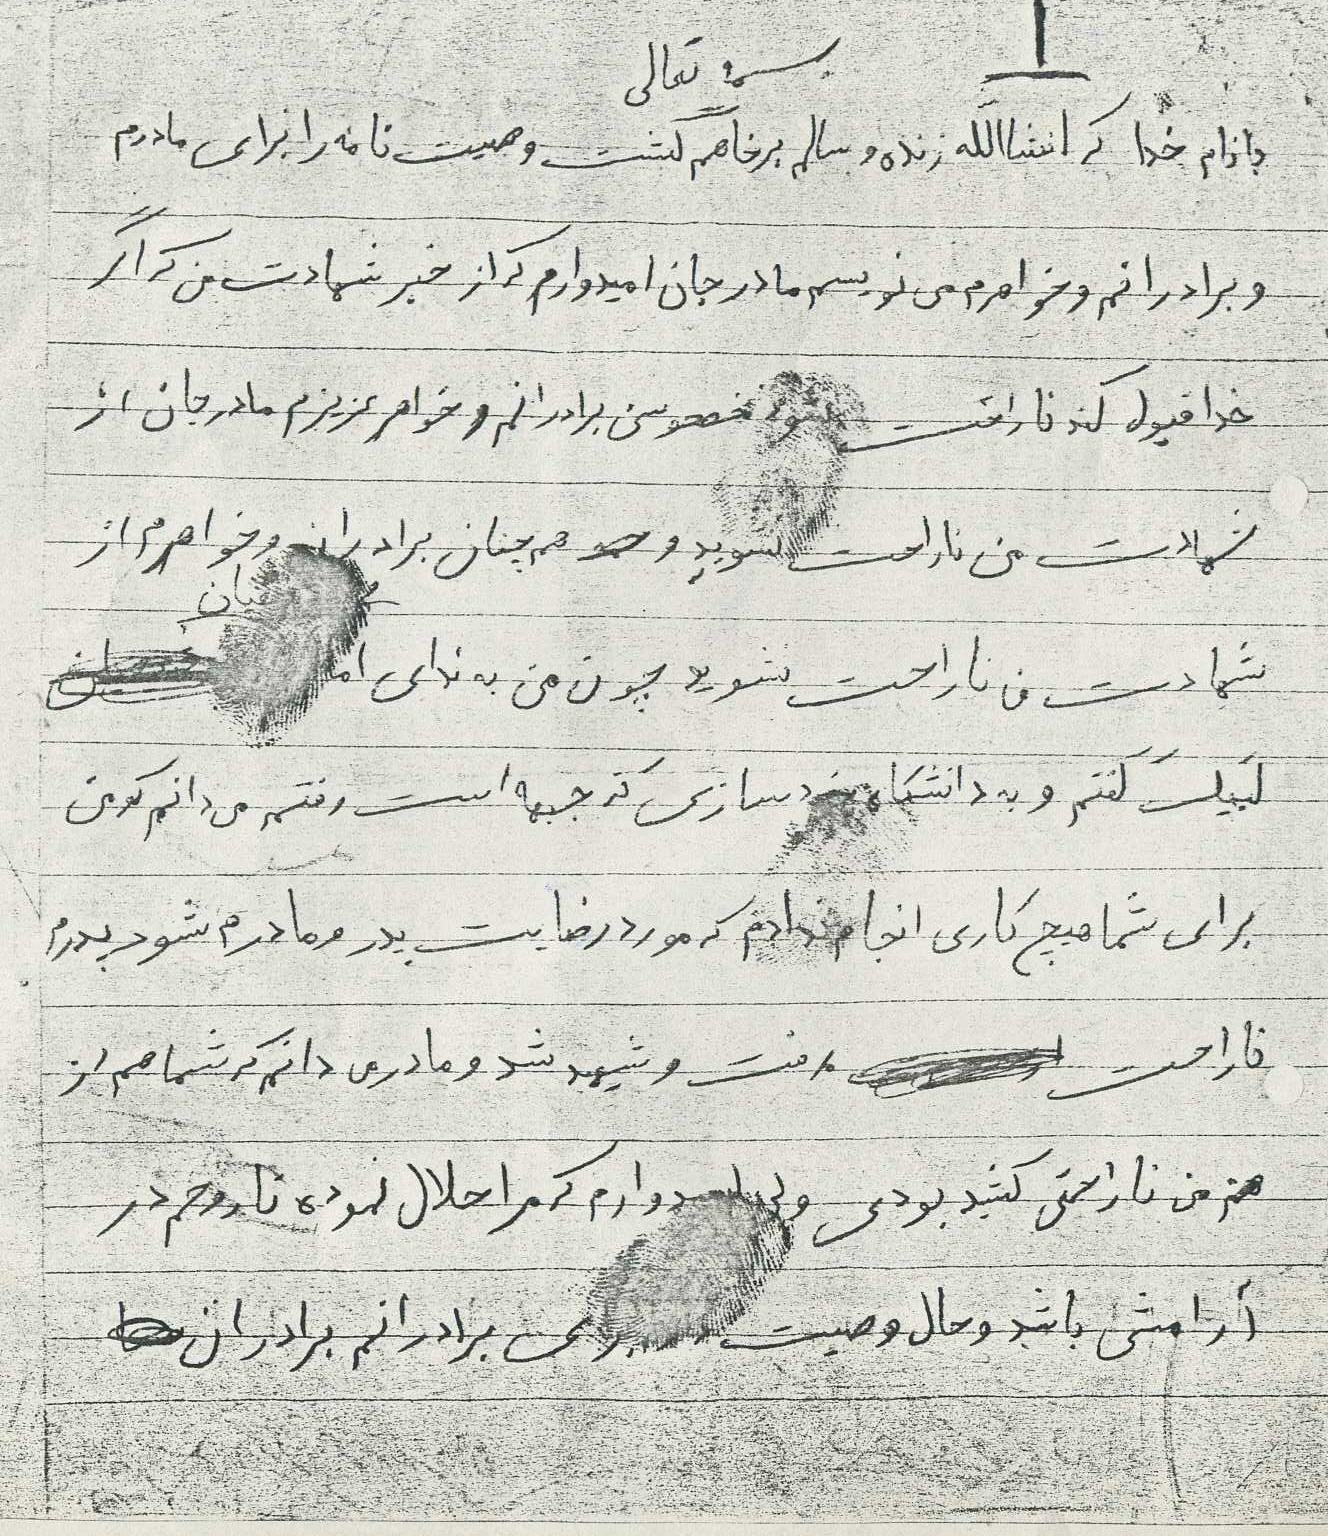 بسمه تعالی
بانام خدا که انشاالله زنده و سالم برخاهم گشت وصیت نامه را برای مادرم
و برادرانم و خواهرم می نویسم مادر جان امیدوارم که از خبر شهادت من که اگر
خدا قبول کند ناراحت نشوید خصوصن برادرانم و خواهر عزیزم مادر جان از
شهادت من ناراحت نشوید و هم چنان برادرانم و خواهرم از
شهادت من ناراحت نشوید چون من به ندای
لبیک گفتم و به دانشگاه سازی که جبهه است رفتم می دانم که من
برای شما هیچ کاری انجام ندادم که مورد رضایت پدر و مادرم شود پدرم
ناراحت رفت و شیهد شد و مادر می دانم که شما هم از
من ناراحتی کشید بودی ولی امیدوارم که مرا حلال نموده تا روحم در
آرامشی باشد و حال وصیت برادرانم برادران